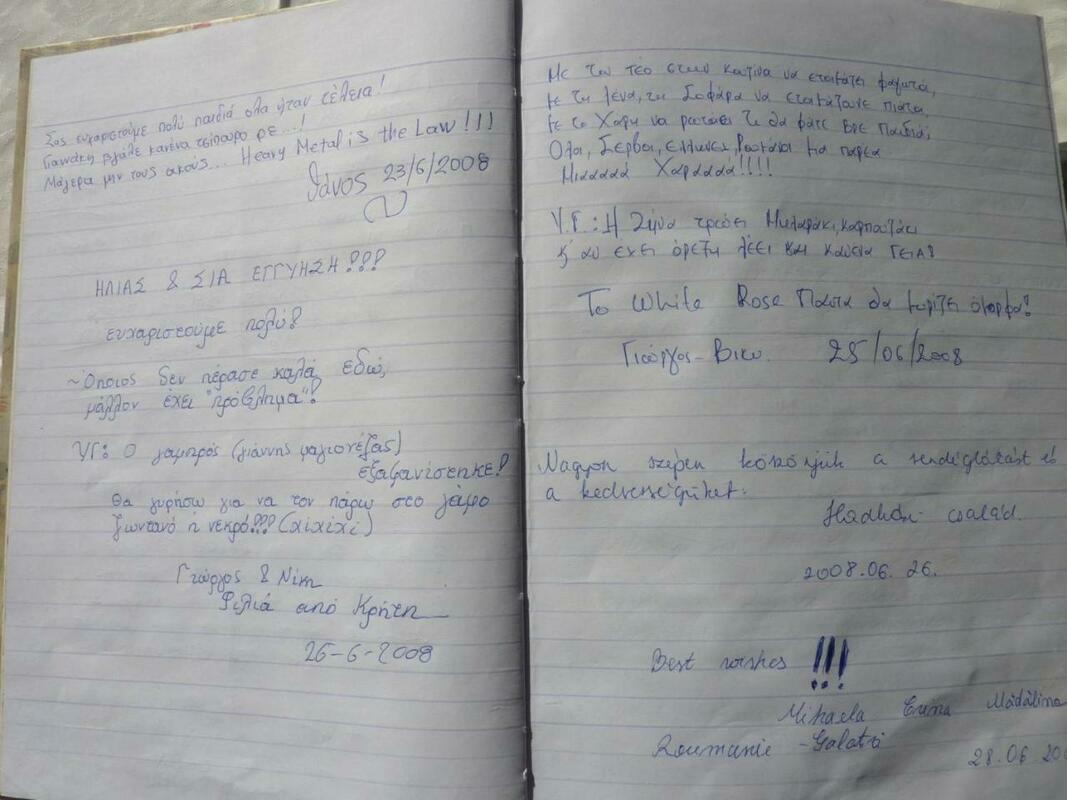 Σας ευχαριστούμε πολύ παιδιά ολα ήταν τέλεια!
Γιαννάκη βγάλε κανένα τσίπουρο ρε...!
Μάγερα μην τους ακούς... Heavy Metal is the Law!!!
Θάνος 23/6/2008
ΗΛΙΑΣ & ΣΙΑ ΕΓΓΥΗΣΗ!!!
ευχαριστούμε πολύ!
~Όποιος δεν πέρασε καλά εδώ,
μάλλον έχει "πρόβλημα"!
ΥΓ: Ο γαμπρός (γιάννης μαγιονέζας)
εξαφανίστηκε!
Θα γυρήσω για να τον πάρω στο γάμο
ζωντανό ή νεκρό??? (χιχιχι)
Γιώργος & Νίκη
Φιλιά από Κρήτη
26-6-2008
Με τον τέο στην κουζίνα να ετοιμάζει φαγητά,
με τη λένα, τη Σοφάρα να ετοιμάζουνε πιάτα,
με το Χάρη να ρωτάει τι θα φάτε βρε παιδιά,
Όλοι, Σέρβοι, ελληνες, Ρουμάνοι μια παρέα
Μιααααά Χαραααά!!!!
Υ.Γ.: Η Ζήνα τρώει καρπουζάκι
κι αν εχει όρεξη λέει και κανένα ΓΕΙΑ!
Το White Rose Πάντα θα μυρίζει όμορφα!
Γιώργος - Βικυ. 25/06/2008
Nagyon szépen köszönjük a vendéglátást és
a kedvességüket.
család.
2008.06.26.
Best wishes !!!
Mihaela Mădălina
Roumanie - Galati
28.06